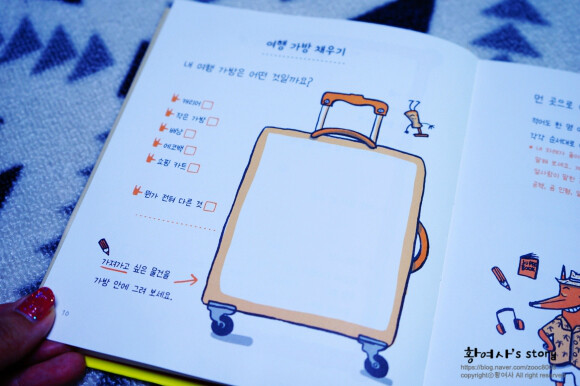 여행 가방 채우기
내 여행 가방은 어떤 것일까요?
캐리어
작은 가방
배낭
에코백
쇼핑 카트
뭔가 전혀 다른 것
가져가고 싶은 물건을
가방 안에 그려 보세요.
10
먼 곳으로
적어도 한 명
각각 순서대로
황여사's story
https://blog.naver.com/zsoo80
copyright©황여사 All right reserved